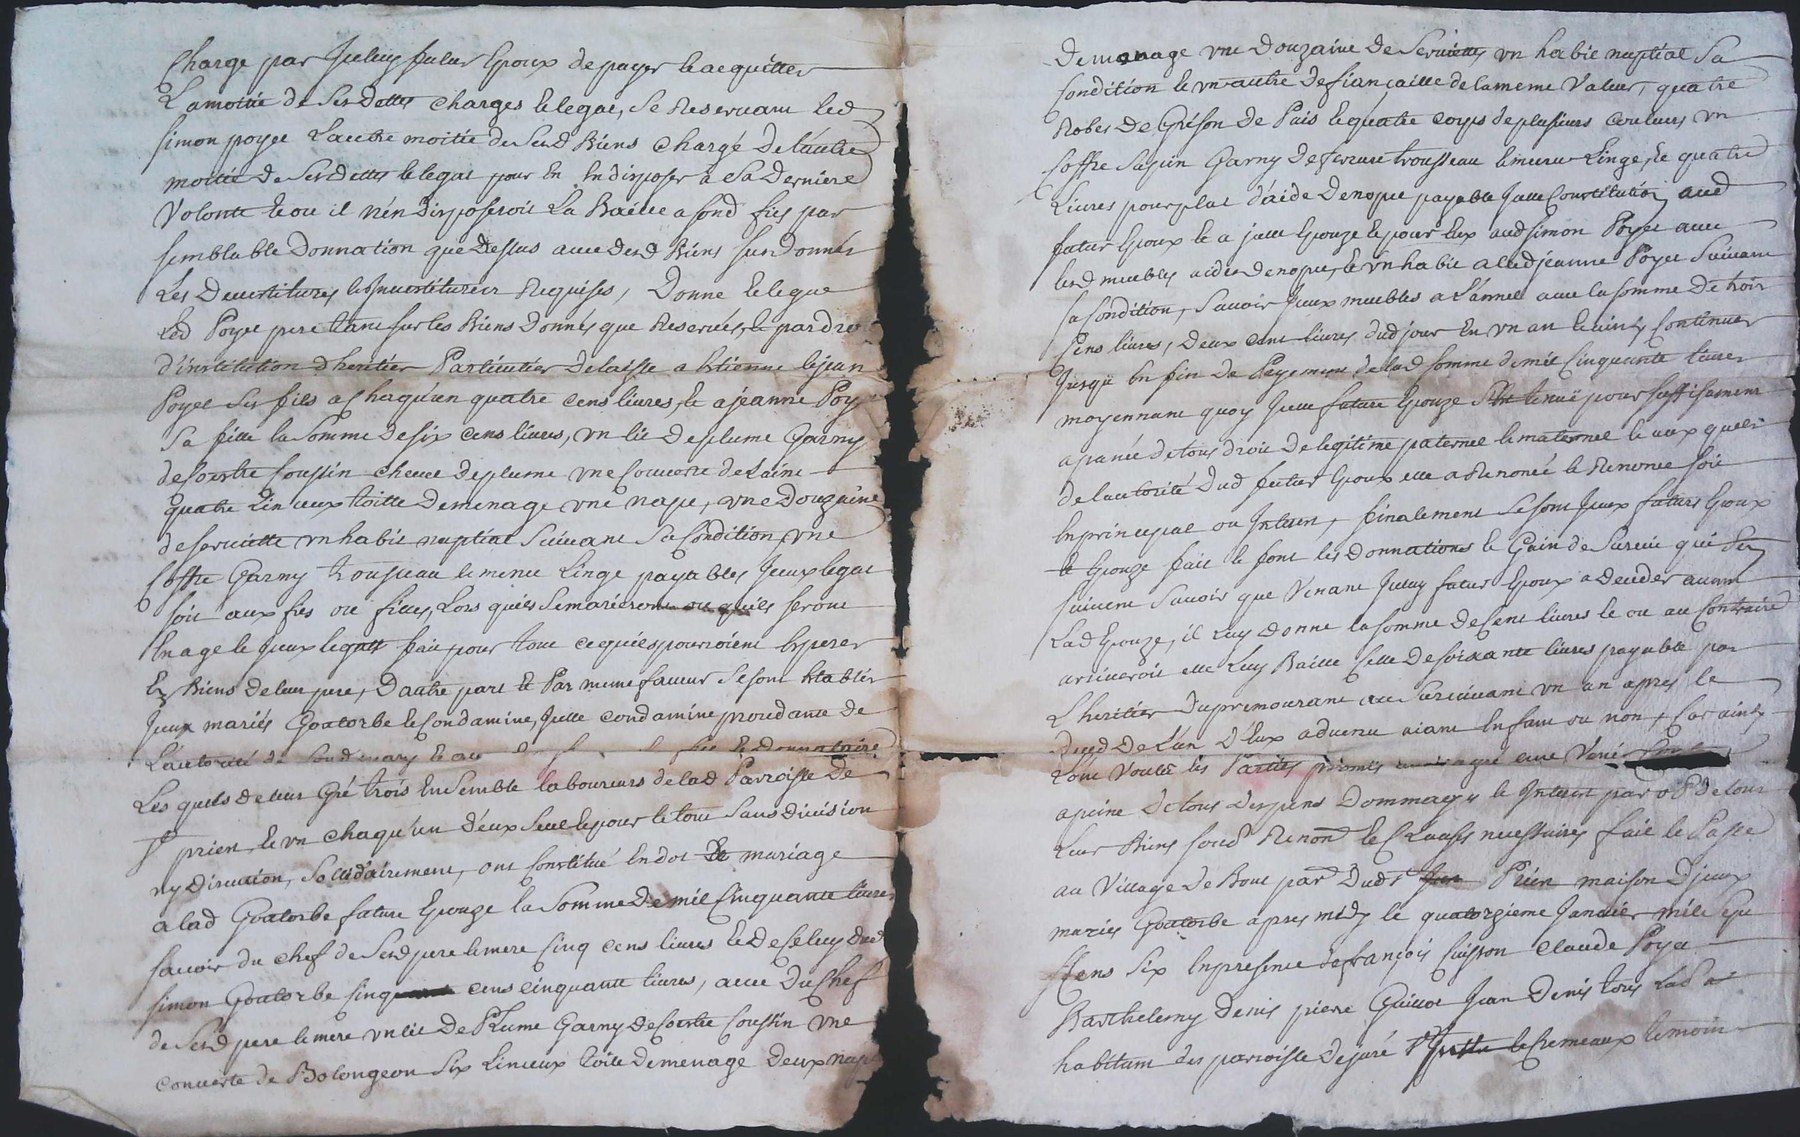 Charge par Jceluy futur Epoux de payer & acquitter
La moitié de ses dettes charges & legat, se Reservant led
simon poyet Lautre moitié de sesd Biens chargé de L'autre
moitié de ses dettes & legat pour En Endisposer a sa Derniere
Volonté & ou il n'en disposeroit La Baillé a sond fils par
semblable Donnation que Dessus avec desd Biens sus donnés
Les Devestitures & Jnvestitures Requises, Donne & legue
Led Poyet pere tant sur les Biens Donnés que Reservés, & par dro
d'institution d'heritier Particulier delaisse a Etienne & jean
Poyet ses fils a chaqu'un quatre cens livres, & a jeanne Poy
sa fille la somme de six cens livres, un lit de plume Garny
de Coestre Coussin chevet de plume une Couverte de Laine
quatre Linceux toille de menage une nape, une Douzaine
de serviette un habit nuptial suivant sa Condition, une
Coffre Garny trousseau & menu Linge payables Jceux legat
soit aux fils ou filles, Lors qu'ils se marieront ou qu'ils seront
En age & Jceux legatt fait pour tout ce qu'ils pourroient Esperer
Es Biens de leur pere, D'autre part & Par meme faveur se sont Etablis
Jceux mariés Goutorbe & Condamine, Jcelle condamine procedante de
L'autorité de sond mary & Donnataire
Les quels de leur Gré trois Ensemble laboureurs de lad Parroisse de
St prien & un chaqu'un d'eux seul & pour le tout sans division
ny discution, solidairement, ont Constitué En dot de mariage
a lad Goutorbe future Epouze la somme De mil Cinquante livres
sçavoir du chef de sesd pere & mere Cinq cens livres & De Celuy dud
simon Goutorbe Cinq cens cinquante livres, avec du Chef
de sesd pere & mere un lit de Plume Garny de Coestre Coussin une
couverte de Bolongeon six Linceux toille de menage deux nape
De menage une Douzaine de serviettes un habit nuptial sa
Condition & un autre de fiançaille de la meme Valeur, quatre
Robes De Gréson de Païs & quatre corps de plusieurs couleurs un
Coffre sapin Garny de ferrure trousseau & menu Linge, & quatre
Livres pour plat d'aide de nopce payable Jcelle Constitution aud
futur Epoux & a jcelle Epouze & pour Eux aud simon Poyet avec
lesd meubles aides de nopces, & un habit a lad jeanne Poyet suivant
sa Condition, sçavoir Jceux meubles a L'année avec la somme De trois
Cens livres, Deux cent livres dud jour En un an & ainsy Continuer
Jusqu'à En fin de Payement de lad somme de mil Cinquante livres
moyennant quoy Jcelle future Epouze s'est tenuë pour suffisament
apanée de tous droit de legitime paternel & maternel & aux quels
de l'autorité dud futur Epoux elle a Renoncé & Renonce soit
En principal ou Jnterets, finalement se sont Jceux futurs Epoux
& Epouze fait & font les donnations & Gain de survie qui s'en
suivent sçavoir que Venant Jceluy futur Epoux a Deceder avant
Lad Epouze, il Luy Donne la somme de Cent livres & ou au Contraire
ariveroit elle Luy Baille Celle De soixante livres payable par
L'heritier Du premourant au survivant un an apres le
Deced De l'un d'Eux advenu aiant Enfant ou non, Car ainsy
L'ont Voulu les Parties promis agré avoir
a peine De tous Depens Dommages & Jnterets par obl de tous
Leur Biens soud Renond & Clauses necessaires fait & Passé
au Village de Bout pard Dud St Prien maison D'jceux
mariés Goutorbe apres midy le quatorzieme Janvier mile Sept
Cens six En presence de françois Cuisson Claude Poyet
Barthelemy Denis pierre Guillot Jean Denis tous
habitant des parroisse de juré St Juste & Cremeaux temoin